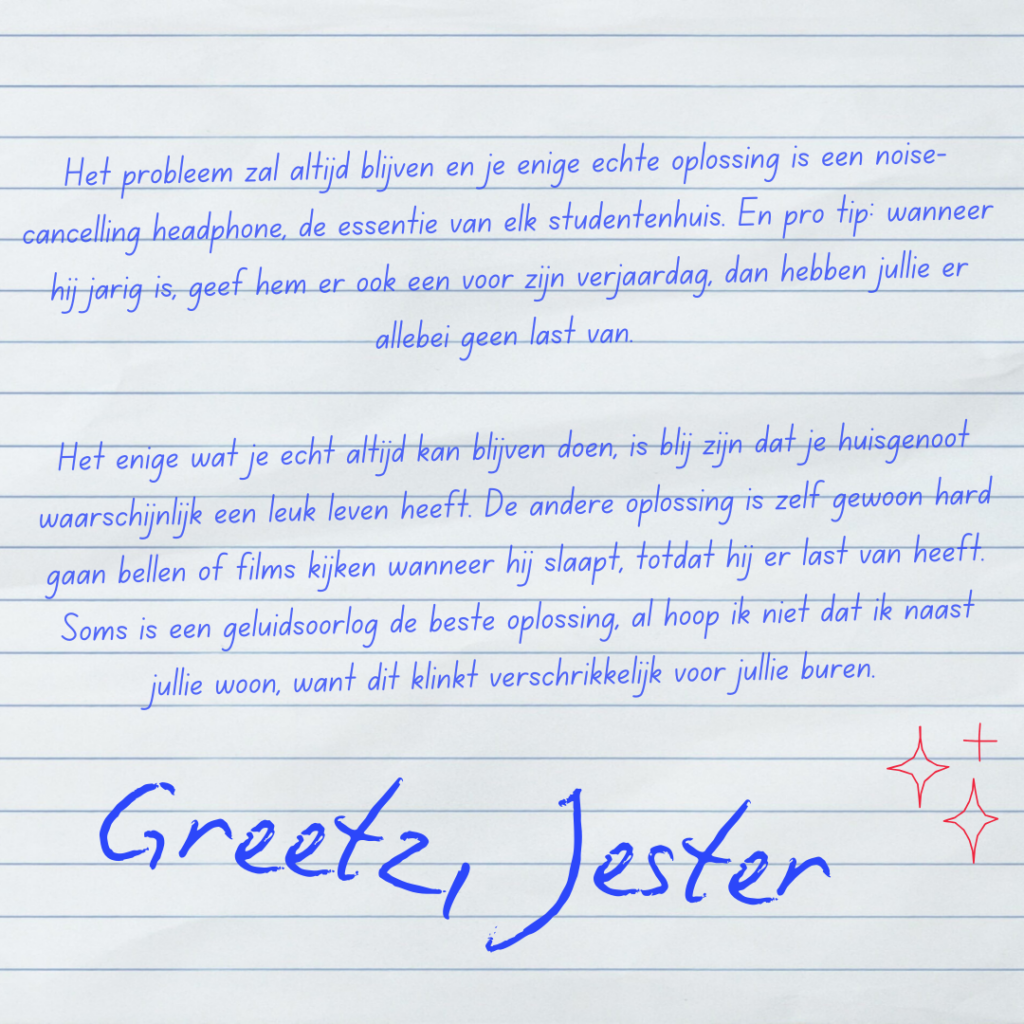 Het probleem zal altijd blijven en je enige echte oplossing is een noise-
cancelling headphone, de essentie van elk studentenhuis. En pro tip: wanneer
hij jarig is, geef hem er ook een voor zijn verjaardag, dan hebben jullie er
allebei geen last van.
Het enige wat je echt altijd kan blijven doen, is blij zijn dat je huisgenoot
waarschijnlijk een leuk leven heeft. De andere oplossing is zelf gewoon hard
gaan bellen of films kijken wanneer hij slaapt, totdat hij er last van heeft.
Soms is een geluidsoorlog de beste oplossing, al hoop ik niet dat ik naast
jullie woon, want dit klinkt verschrikkelijk voor jullie buren.
Greetz, Jester